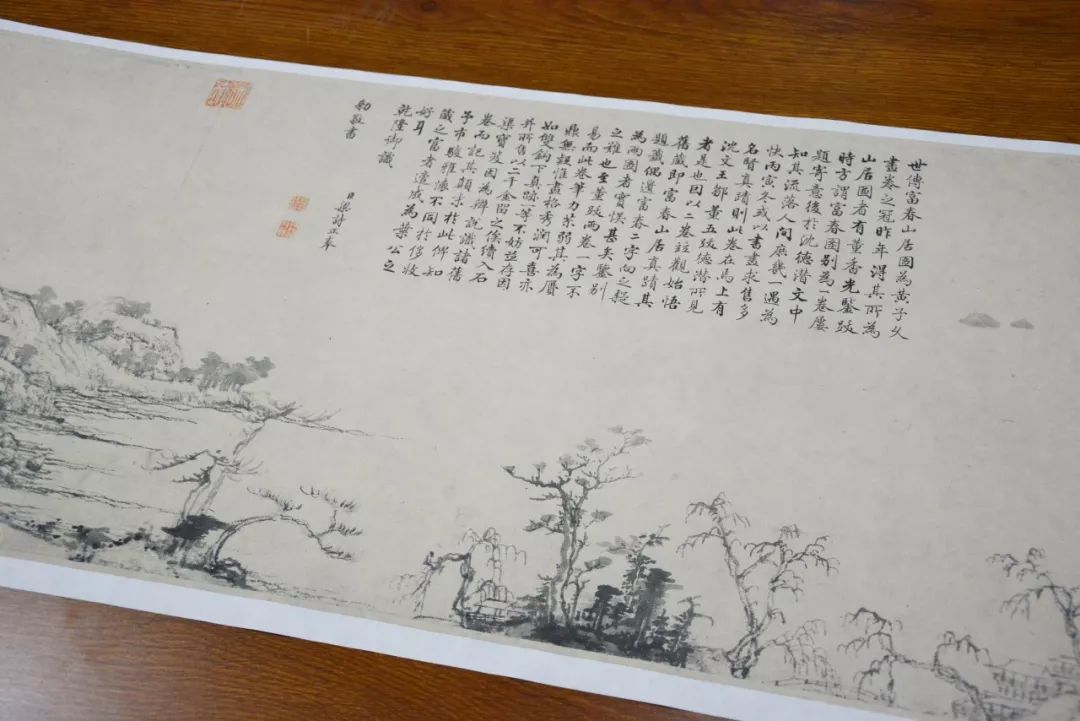 世傳富春山居圖為黃子久
畫卷之冠昨年得其所為
山居圖者有董香光鑒跋
時方謂富春圖別為一卷屢
題寄意後於沈德潛文中
知其流落人間庶幾一遇為
快丙寅冬或以書畫求售多
名賢真蹟則此卷在焉上有
沈文王鄒董五跋德潛所見
者是也因以二卷並觀始悟
舊藏即富春山居真蹟其
題籤偶遺富春二字向之疑
為兩圖者實悮甚矣鑒別
之難也至董跋兩卷一字不
易而此卷筆力苶弱其為贗
鼎無疑惟畫格秀潤可喜亦
如雙鈎下真跡一等不妨並存因
并所售以二千金留之俟續入石
渠寶笈因為辨說識諸舊
卷而記其顛末於此俾知
予市駿雅懷不同於侈收
藏之富者為葉公之
好耳
乾隆御識
臣梁詩正奉
勅敬書